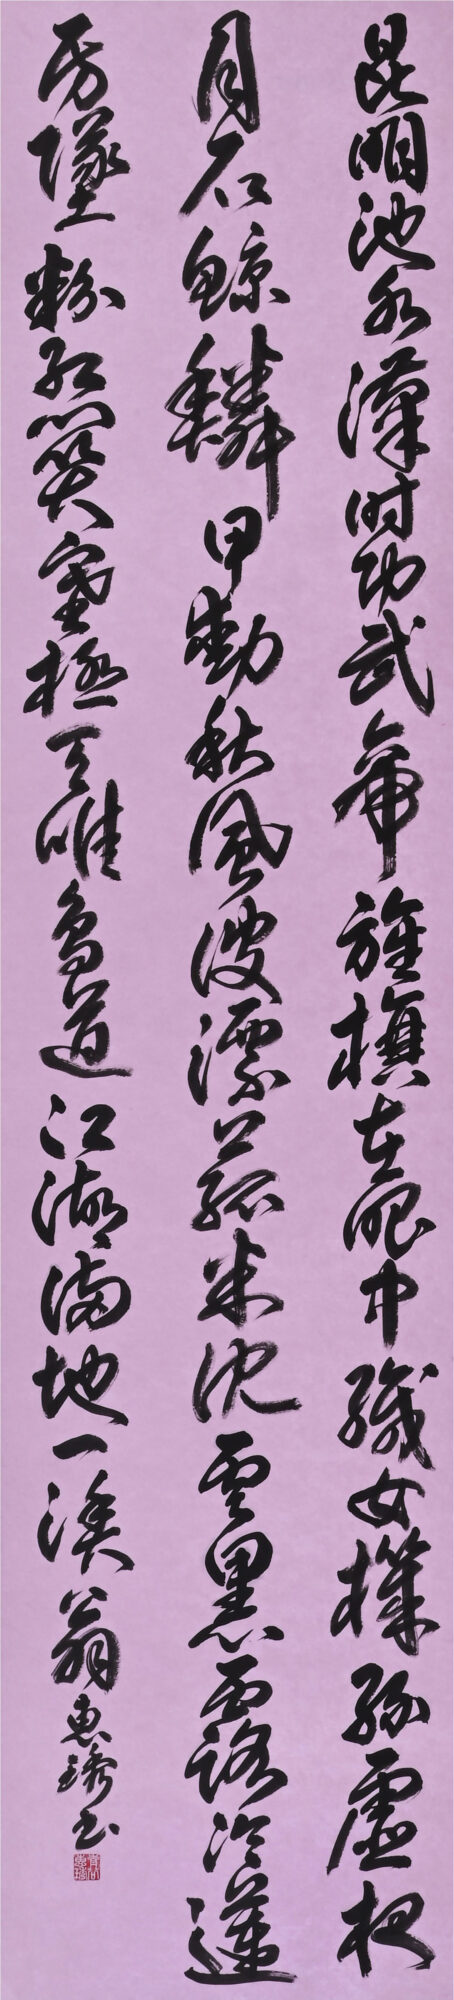 昆明池水漢时功武帝旌旗在眼中織女機絲虛夜
月石鯨鱗甲動秋風波漂菰米沈雲黑露冷蓮
房墜粉紅關塞極天唯鳥道江湖滿地一漁翁 惠琇书